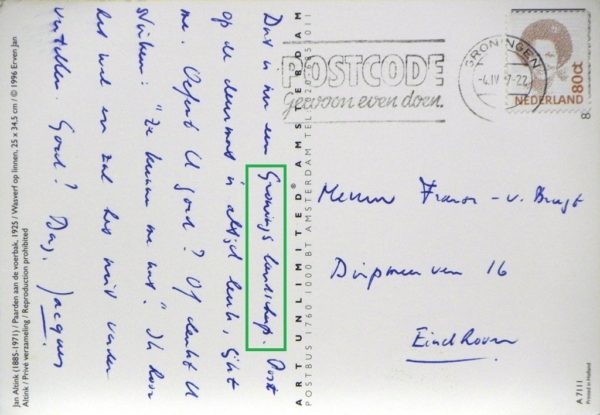 Dat is nu een Gronings landschap. Post
op de deurmat is altijd leuk, lijkt
me. Oefent U goed? Of denkt U
stiekem: "Ze kunnen me wat." Ik hoor
het wel en zal het niet verder
vertellen. Goed? Dag, Jacques
Jan Altink (1885-1971) / Paarden aan de voerbak, 1925 / Wasverf op linnen, 25 x 34,5 cm / © 1996 Erven Jan
Altink / Privé verzameling / Reproduction prohibited
ART UNLIMITED® AMSTERDAM
POSTBUS 1760 1000 BT AMSTERDAM TEL
POSTCODE
Gewoon even doen.
GRONINGEN
-4.IV
NEDERLAND 80ct
Mevrouw v. Bragt
Diepmeerven 16
Eindhoven
A 7111
Printed in Holland